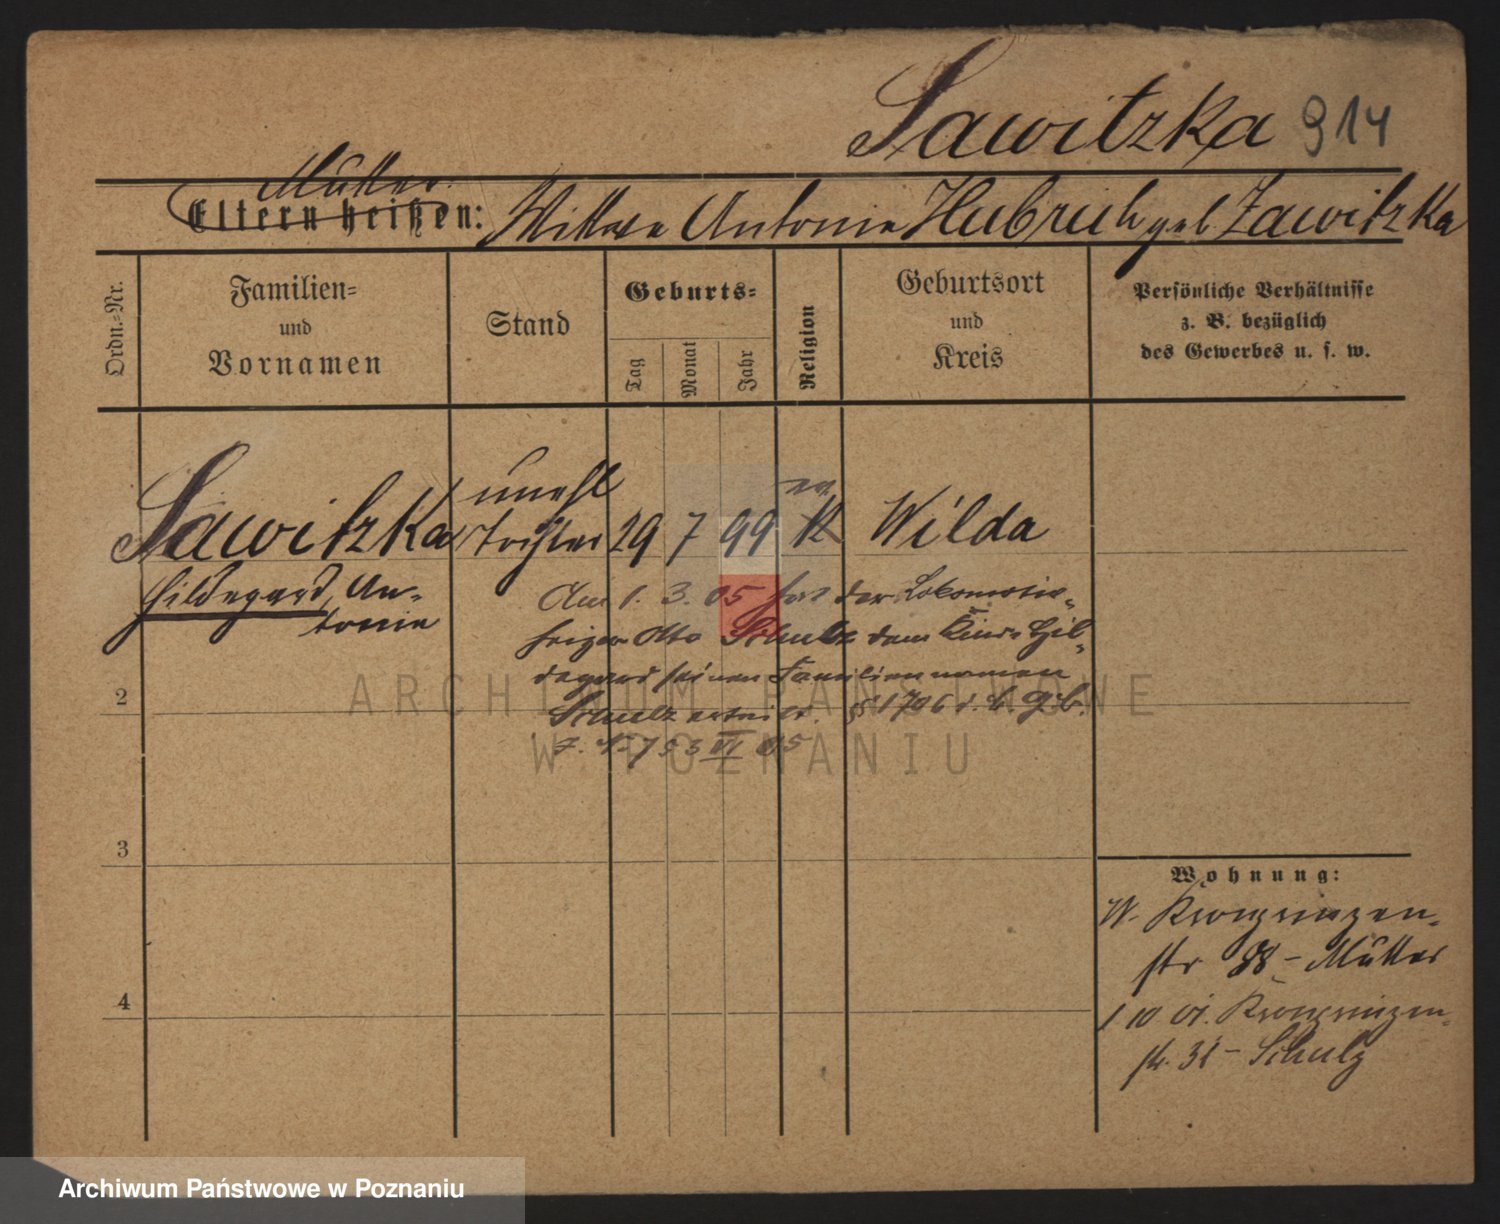 Sawitzka 914
Mutter
Eltern heißen: Wittwe Antonie Hubrich geb Zawitzka
Ordn.-Nr.
Familien-
und
Vornamen
Stand
Geburts-
Tag
Monat
Jahr
Religion
Geburtsort
und
Kreis
Persönliche Verhältnisse
z. B. bezüglich
des Gewerbes u. s. w.
Sawitzka
unehl
Tochter
29 7 99
ev
K
Wilda
Hildegard, An-
tonie
Am 1. 3. 05 hat der Lokomotiv-
heizer Otto Schulz dem Kinde Hil-
degard seinen Familiennamen
Schulz erteilt. § 1706 d. b. G. b.
2
3
4
Wohnung:
W. Kronprinzen-
str 88 - Mutter
1 10 01. Kronprinzen-
str. 31 - Schulz
ARCHIWUM PAŃSTWOWE
W POZNANIU
Archiwum Państwowe w Poznaniu